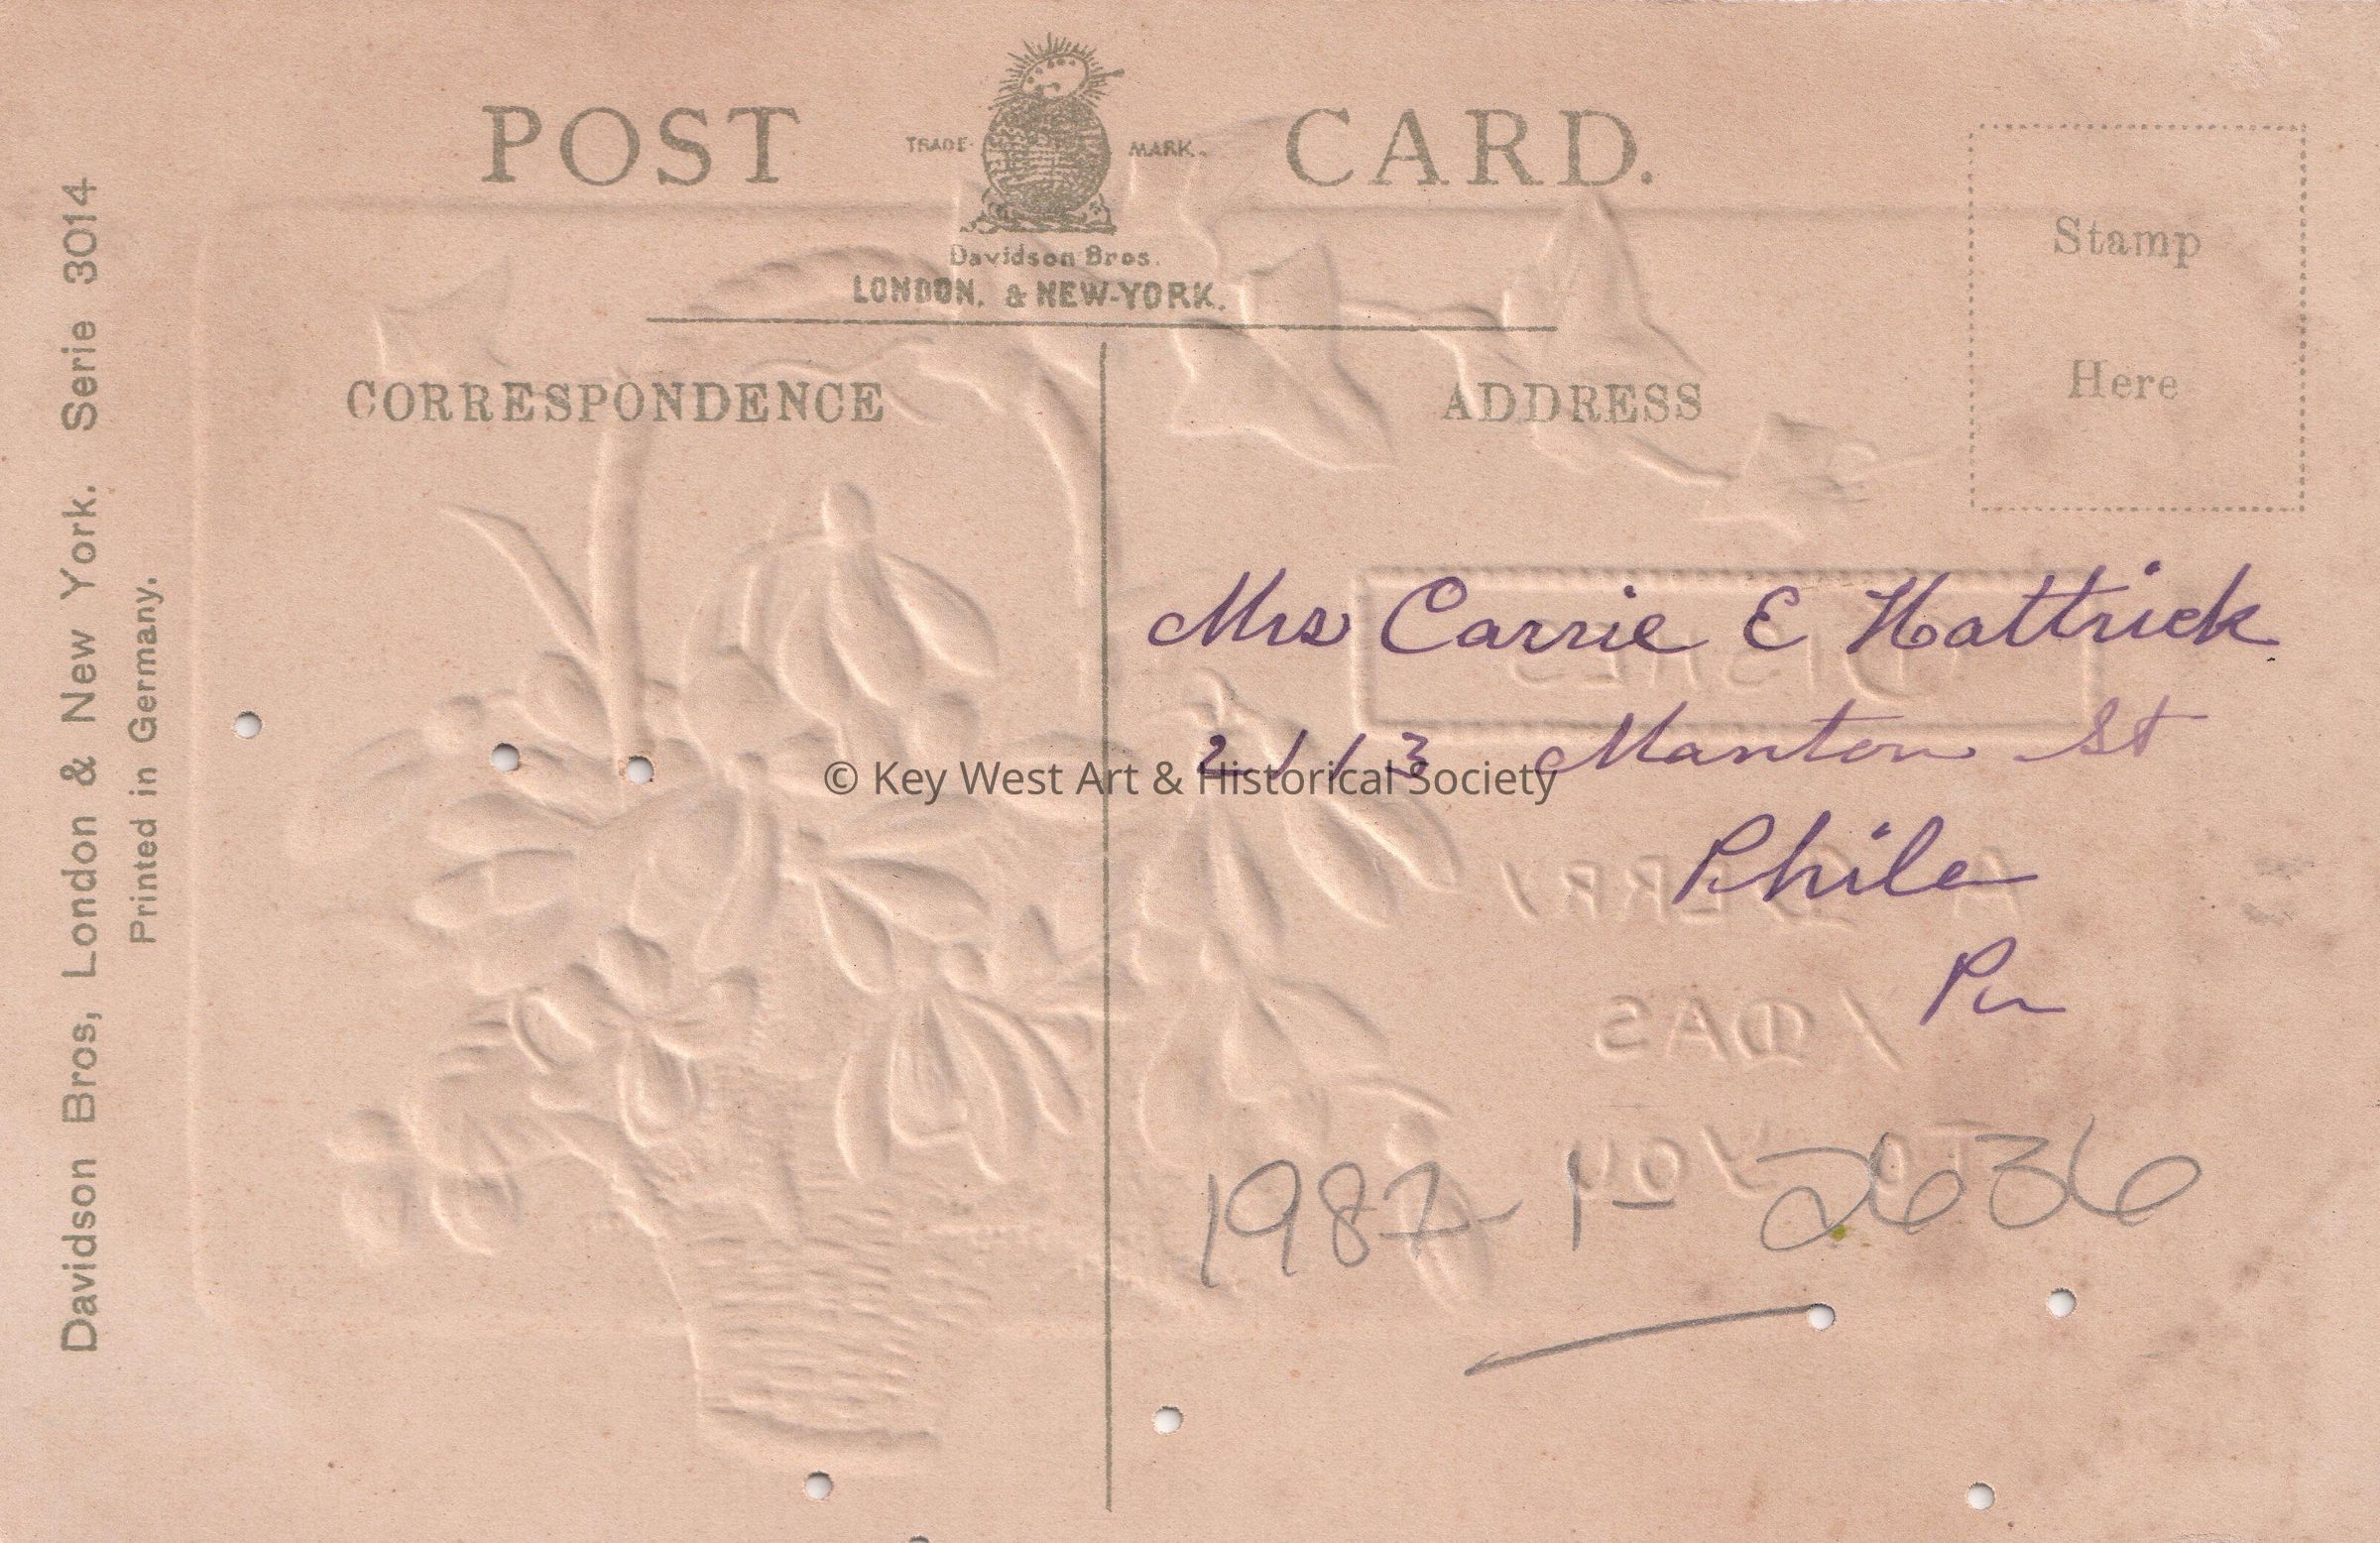 POST CARD.
TRADE- MARK.
Davidson Bros.
LONDON. & NEW-YORK.
Stamp
Here
CORRESPONDENCE
ADDRESS
Davidson Bros, London & New York. Serie 3014
Printed in Germany.
Mrs Carrie E Hattrick
2113 Manton St
Phila
Pa
1987-1-2636
© Key West Art & Historical Society